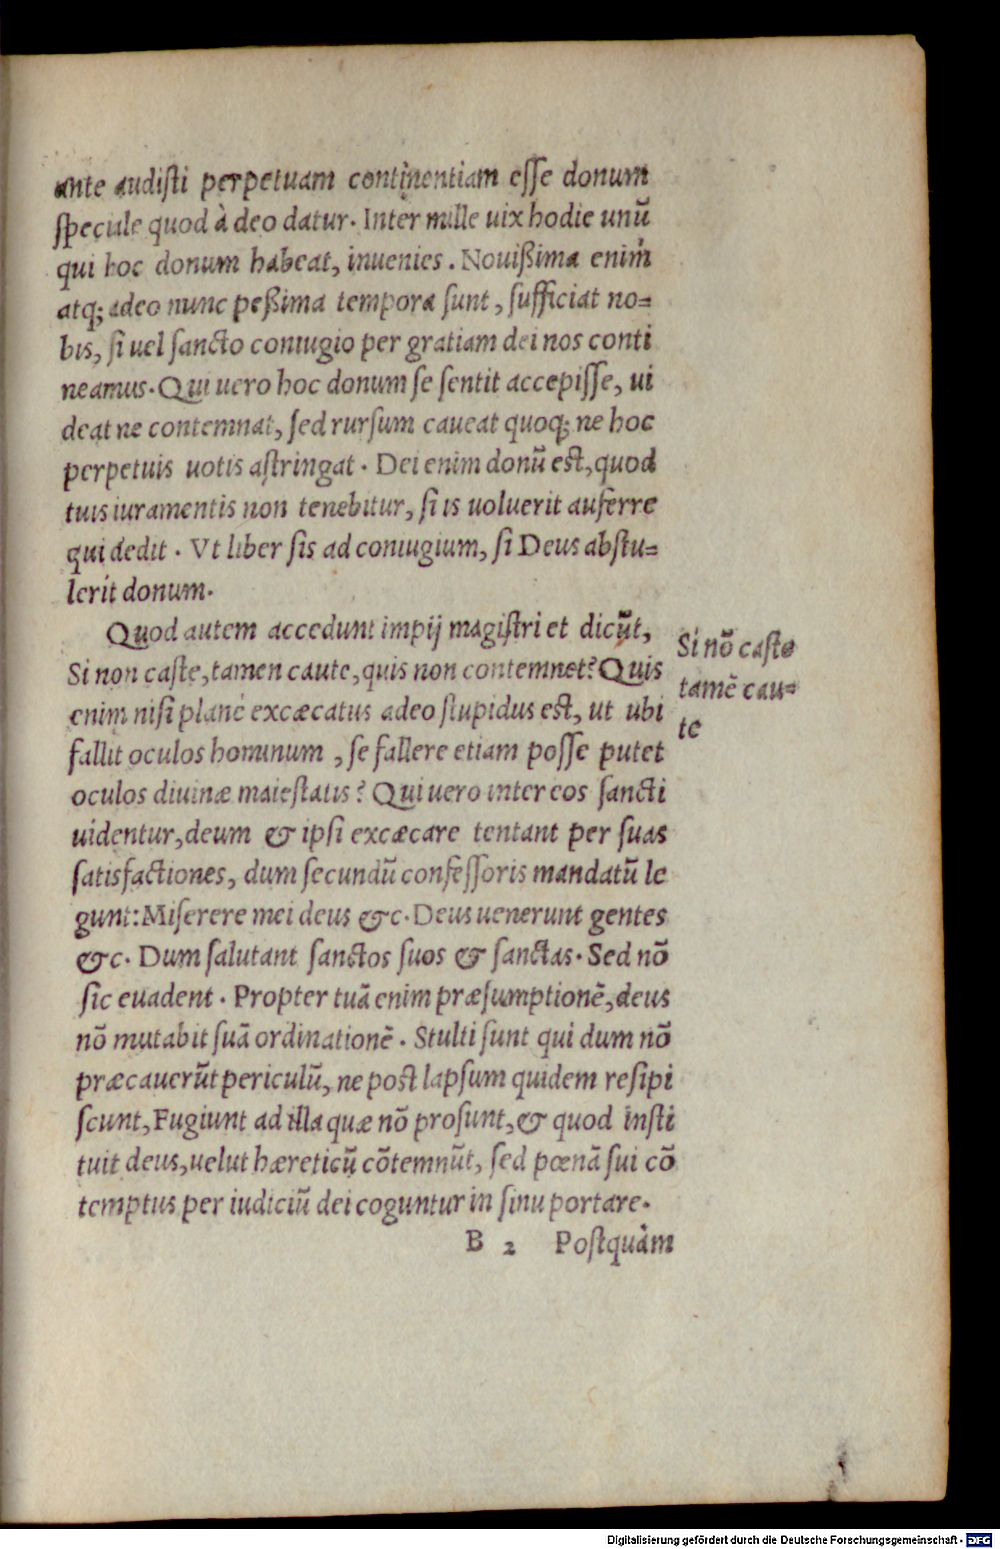 ante audisti perpetuam continentiam esse donum
specule quod à deo datur. Inter mille uix hodie unũ
qui hoc donum habeat, inuenies. Nouißima enim
atq; adeo nunc peßima tempora sunt, sufficiat no=
bis, si uel sancto coniugio per gratiam dei nos conti
neamus. Qui uero hoc donum se sentit accepisse, ui
deat ne contemnat, sed rursum caueat quoq; ne hoc
perpetuis uotis astringat. Dei enim donũ est, quod
tuis iuramentis non tenebitur, si is uoluerit auferre
qui dedit. Vt liber sis ad coniugium, si Deus abstu=
lerit donum.
Quod autem accedunt impij magistri et dicũt,
Si non caste, tamen caute, quis non contemnet? Quis
enim nisi planè excæcatus adeo stupidus est, ut ubi
fallit oculos hominum, se fallere etiam posse putet
oculos diuinæ maiestatis? Qui uero inter eos sancti
uidentur, deum & ipsi excæcare tentant per suas
satisfactiones, dum secundũ confessoris mandatũ le
gunt: Miserere mei deus &c. Deus uenerunt gentes
&c. Dum salutant sanctos suos & sanctas. Sed nõ
sic euadent. Propter tuã enim præsumptionẽ, deus
nõ mutabit suã ordinationẽ. Stulti sunt qui dum nõ
præcauerũt periculũ, ne post lapsum quidem resipi
scunt, Fugiunt ad illa quæ nõ prosunt, & quod insti
tuit deus, uelut hæreticũ cõtemnũt, sed pœnã sui cõ
temptus per iudiciũ dei coguntur in sinu portare.
B 2 Postquàm
Si nõ caste
tamẽ cau=
te
Digitalisierung gefördert durch die Deutsche Forschungsgemeinschaft - DFG